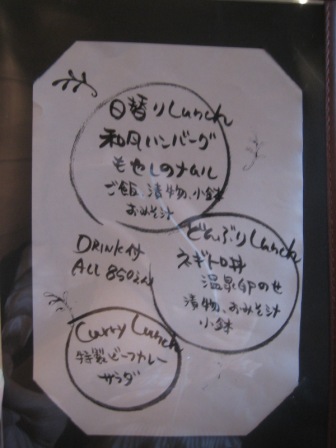 日替りLunch
和風ハンバーグ
もやしのナムル
ご飯、漬物、小鉢
おみそ汁
どんぶりLunch
ネギトロ丼
温泉卵のせ
漬物、おみそ汁
小鉢
DRINK付
ALL 850
Curry Lunch
特製ビーフカレー
サラダ